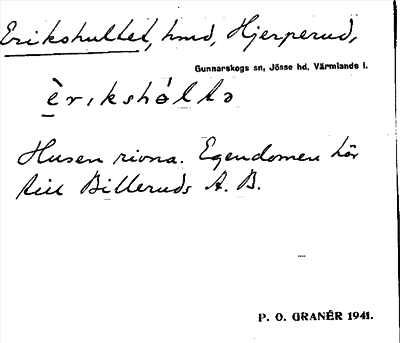 Erikshultet, hmd, Hjerperud,
Gunnarskogs sn, Jösse hd, Värmlands l.
èrikshólta
Husen rivna. Egendomen hör
till Billeruds A. B.
P. O. GRANÉR 1941.